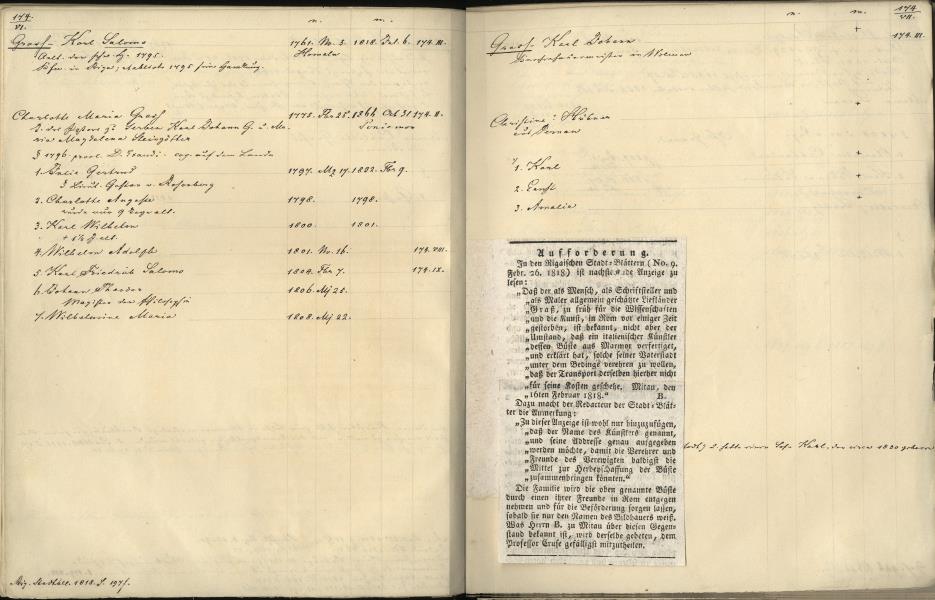 174.
VI.
n. m.
Grass - Karl Salomo 1761. No. 3. 1818. Dec. 6. 174. III.
1795.
in Riga; 1795 seine Handlung.
Charlotte Maria Grass 1775. Fbr 25. 1864 Oct 31 174. II.
Karl Johann G. u. Ma-
ria Magdalena
1796
auf dem Lande
1. Julie Gertrud 1797. Mz 17. 1822. Fbr 9.
Gustav v.
2. Charlotte Auguste 1798. 1798.
wurde nur 9 Tage alt.
3. Karl Wilhelm 1800. 1801.
+ 1½ J. alt.
4. Wilhelm Adolph 1801. No. 16. 174. VIII.
5. Karl Friedrich Salomo 1804. Fbr 7. 174. IX.
6. Johann Theodor 1806. Mj 25.
Magister der Philosophie
7. Wilhelmine Maria 1808. Mj 22.
Rig. Stadtbll. 1818. S. 197.
n. m. 174
VII.
Grass - Karl Johann + 174. III.
in Wolmar
Christine Hübner +
aus Pernau
1. Karl +
2. Ernst +
3. Amalie +
Aufforderung.
In den Rigaischen Stadt-Blättern (No. 9.
Febr. 26. 1818) ist nachstehende Anzeige zu
lesen:
„Daß der als Mensch, als Schriftsteller und
„als Maler allgemein geschätzte Liefländer
„Graß, zu früh für die Wissenschaften
„und die Kunst, in Rom vor einiger Zeit
„gestorben, ist bekannt, nicht aber der
„Umstand, daß ein italienischer Künstler
„dessen Büste aus Marmor verfertiget,
„und erklärt hat, solche seiner Vaterstadt
„unter dem Bedinge verehren zu wollen,
„daß der Transport derselben hierher nicht
„für seine Kosten geschehe. Mitau, den
„16ten Februar 1818.“ B.
Dazu macht der Redacteur der Stadt-Blät-
ter die Anmerkung:
„Zu dieser Anzeige ist wohl nur hinzuzufügen,
„daß der Name des Künstlers genannt,
„und seine Addresse genau aufgegeben
„werden möchte, damit die Verehrer und
„Freunde des Verewigten baldigst die
„Mittel zur Herbeyschaffung der Büste
„zusammenbringen könnten.“
Die Familie wird die oben genannte Büste
durch einen ihrer Freunde in Rom entgegen
nehmen und für die Beförderung sorgen lassen,
sobald sie nur den Namen des Bildhauers weiß.
Was Herrn B. zu Mitau über diesen Gegen-
stand bekannt ist, wird derselbe gebeten, dem
Professor Cruse gefälligst mitzutheilen.
hatte einen Sohn Karl, der circa 1800 geboren